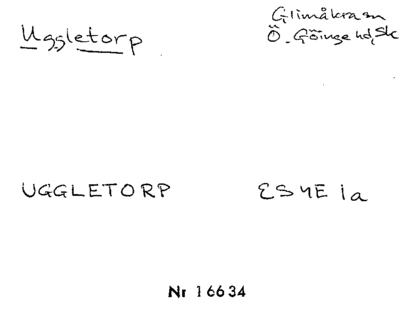 Uggletorp
Glimåkra sn
Ö. Göinge hd, Sk
UGGLETORP
ES4E 1a
Nr 16634